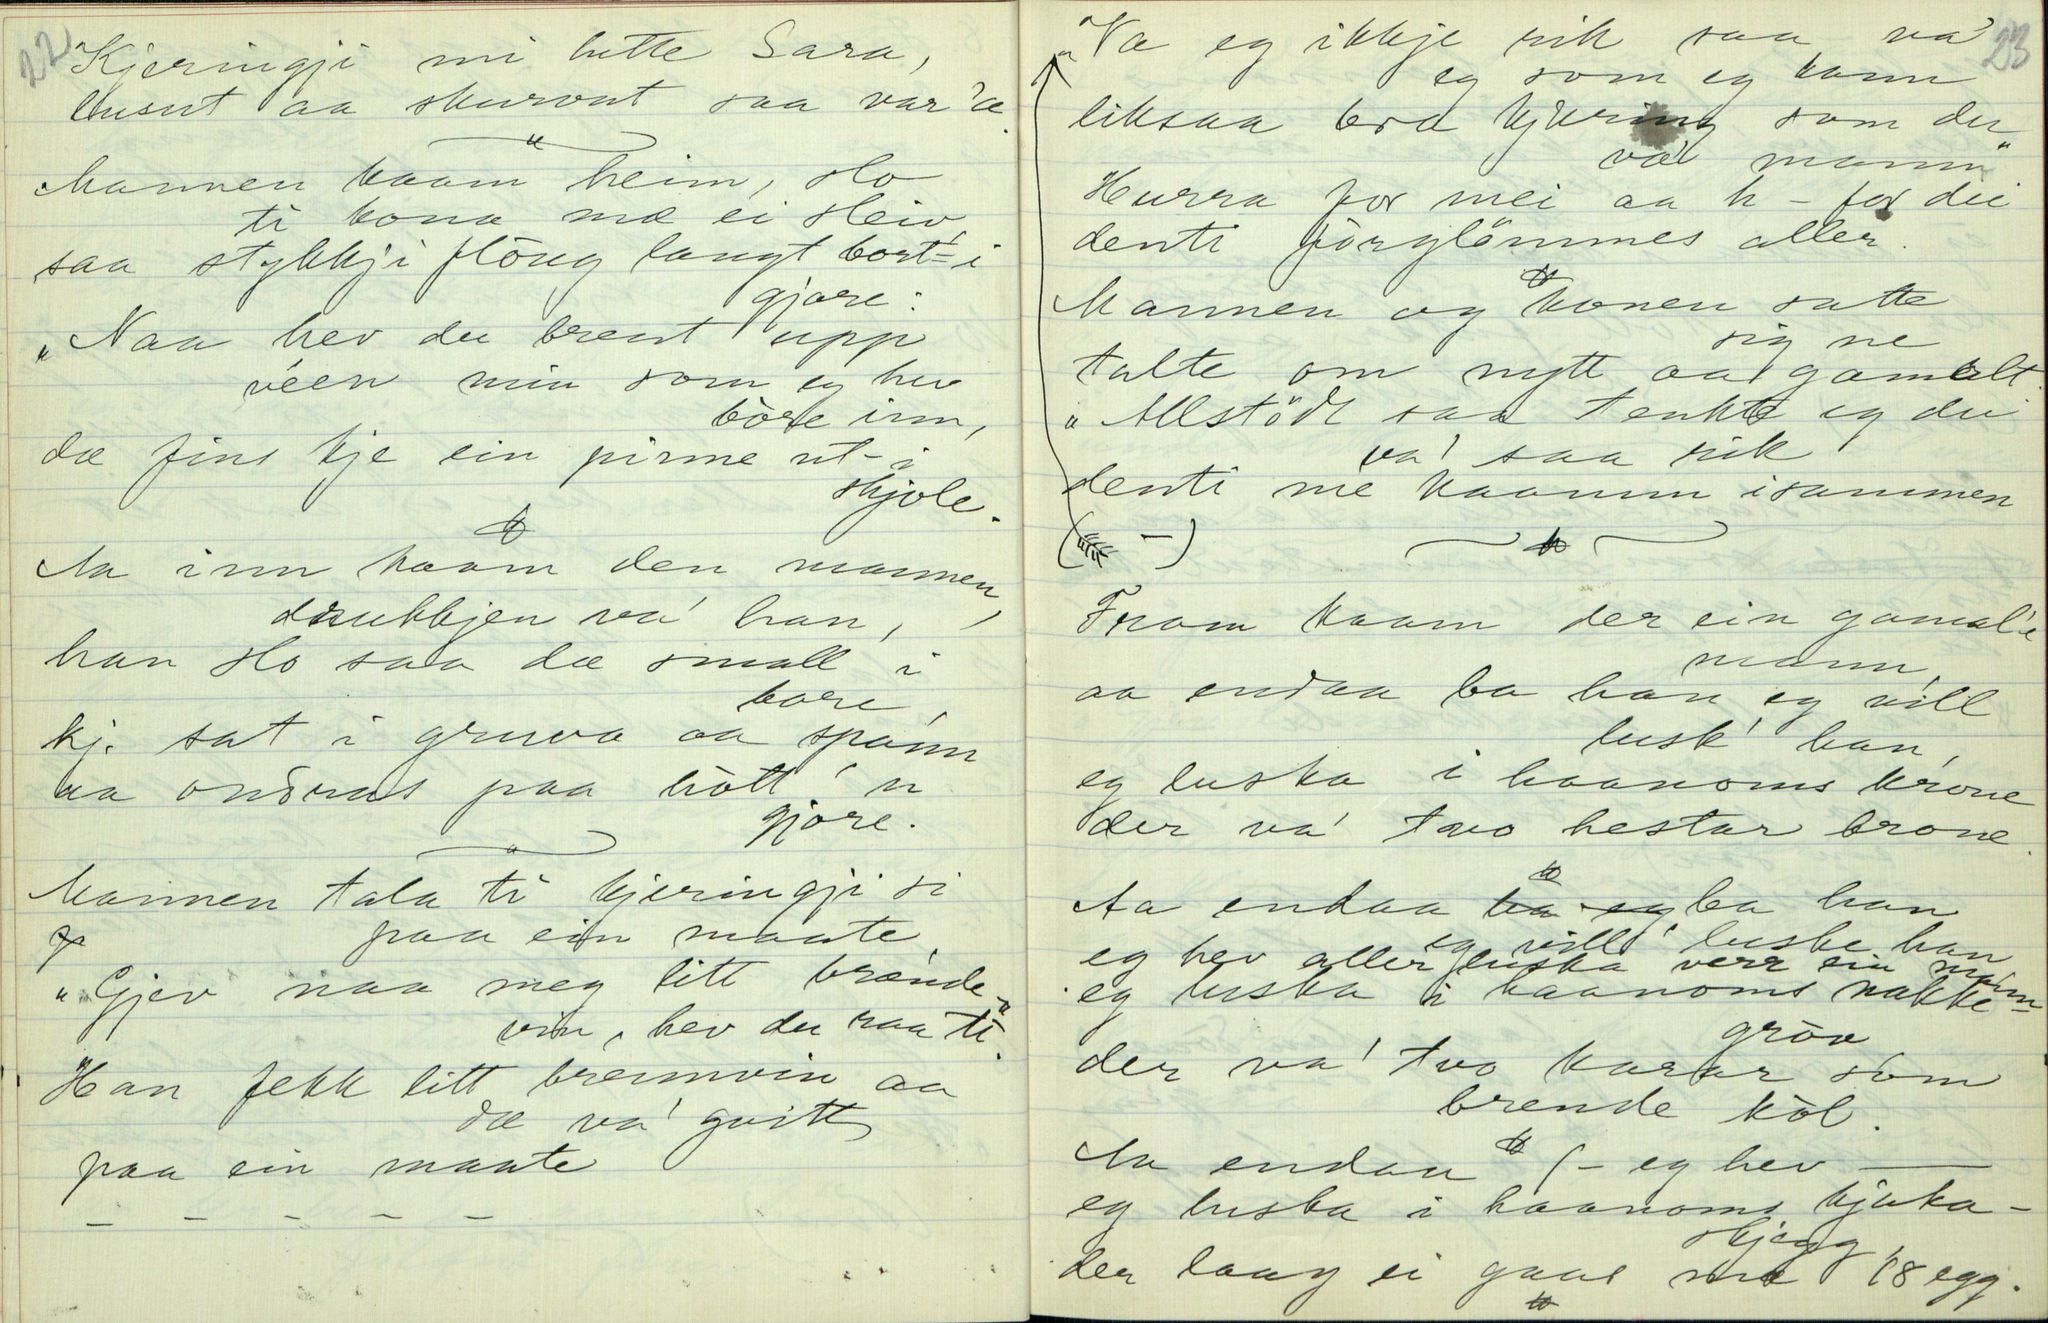 22
Kjeringji mi hette Sara,
lusut aa skurvut saa var 'a.
"
Mannen kaam heim, slo
ti kona mæ ei sleiv,
saa stykkji flöug langt bort-i
gjare.
"Naa hev du brent upp
véen min som eg hev
böre inn,
dæ fins kje ein pinne ut-i
skjole.
"
Aa inn kaam den mannen,
drukkjen va' han,
han slo saa dæ small i
bore,
kj. sat i gruva aa spann
aa ondras paa hött 'n
gjore.
"
Mannen tala ti kjeringji si
paa ein maate,
"Gjev naa meg litt brænde-
vin, hev du raa ti."
Han fekk litt brennvin aa
dæ va' gvitt
paa ein maate
– – – – –
23
"Va eg ikkje rik saa va'
eg som eg kann
liksaa bra kjæring som du
va' mann"
Hurra for mei aa h – for dei
denti förglömmes aller.
"
Mannen og konen satte
sig ne
talte om nytt aa gamalt.
"Allstödt saa tenkte eg du
va' saa rik
denti me kaamm isammen
( – )
"
Fram kaam der ein gamal'e
mann,
aa endaa ba han eg vill
lusk' han,
eg luska i haanoms krone
der va' two hestar brone.
"
Aa endaa ba han
eg vill luske han
eg hev aller luska verr ein mann
eg luska i haanoms nakke-
gröv
der va' two karar som
brende köl.
"
Aa endaa (– eg hev —
eg luska i haanoms kjaka-
skjegg
der laag ei gaas mæ 18 egg.
"